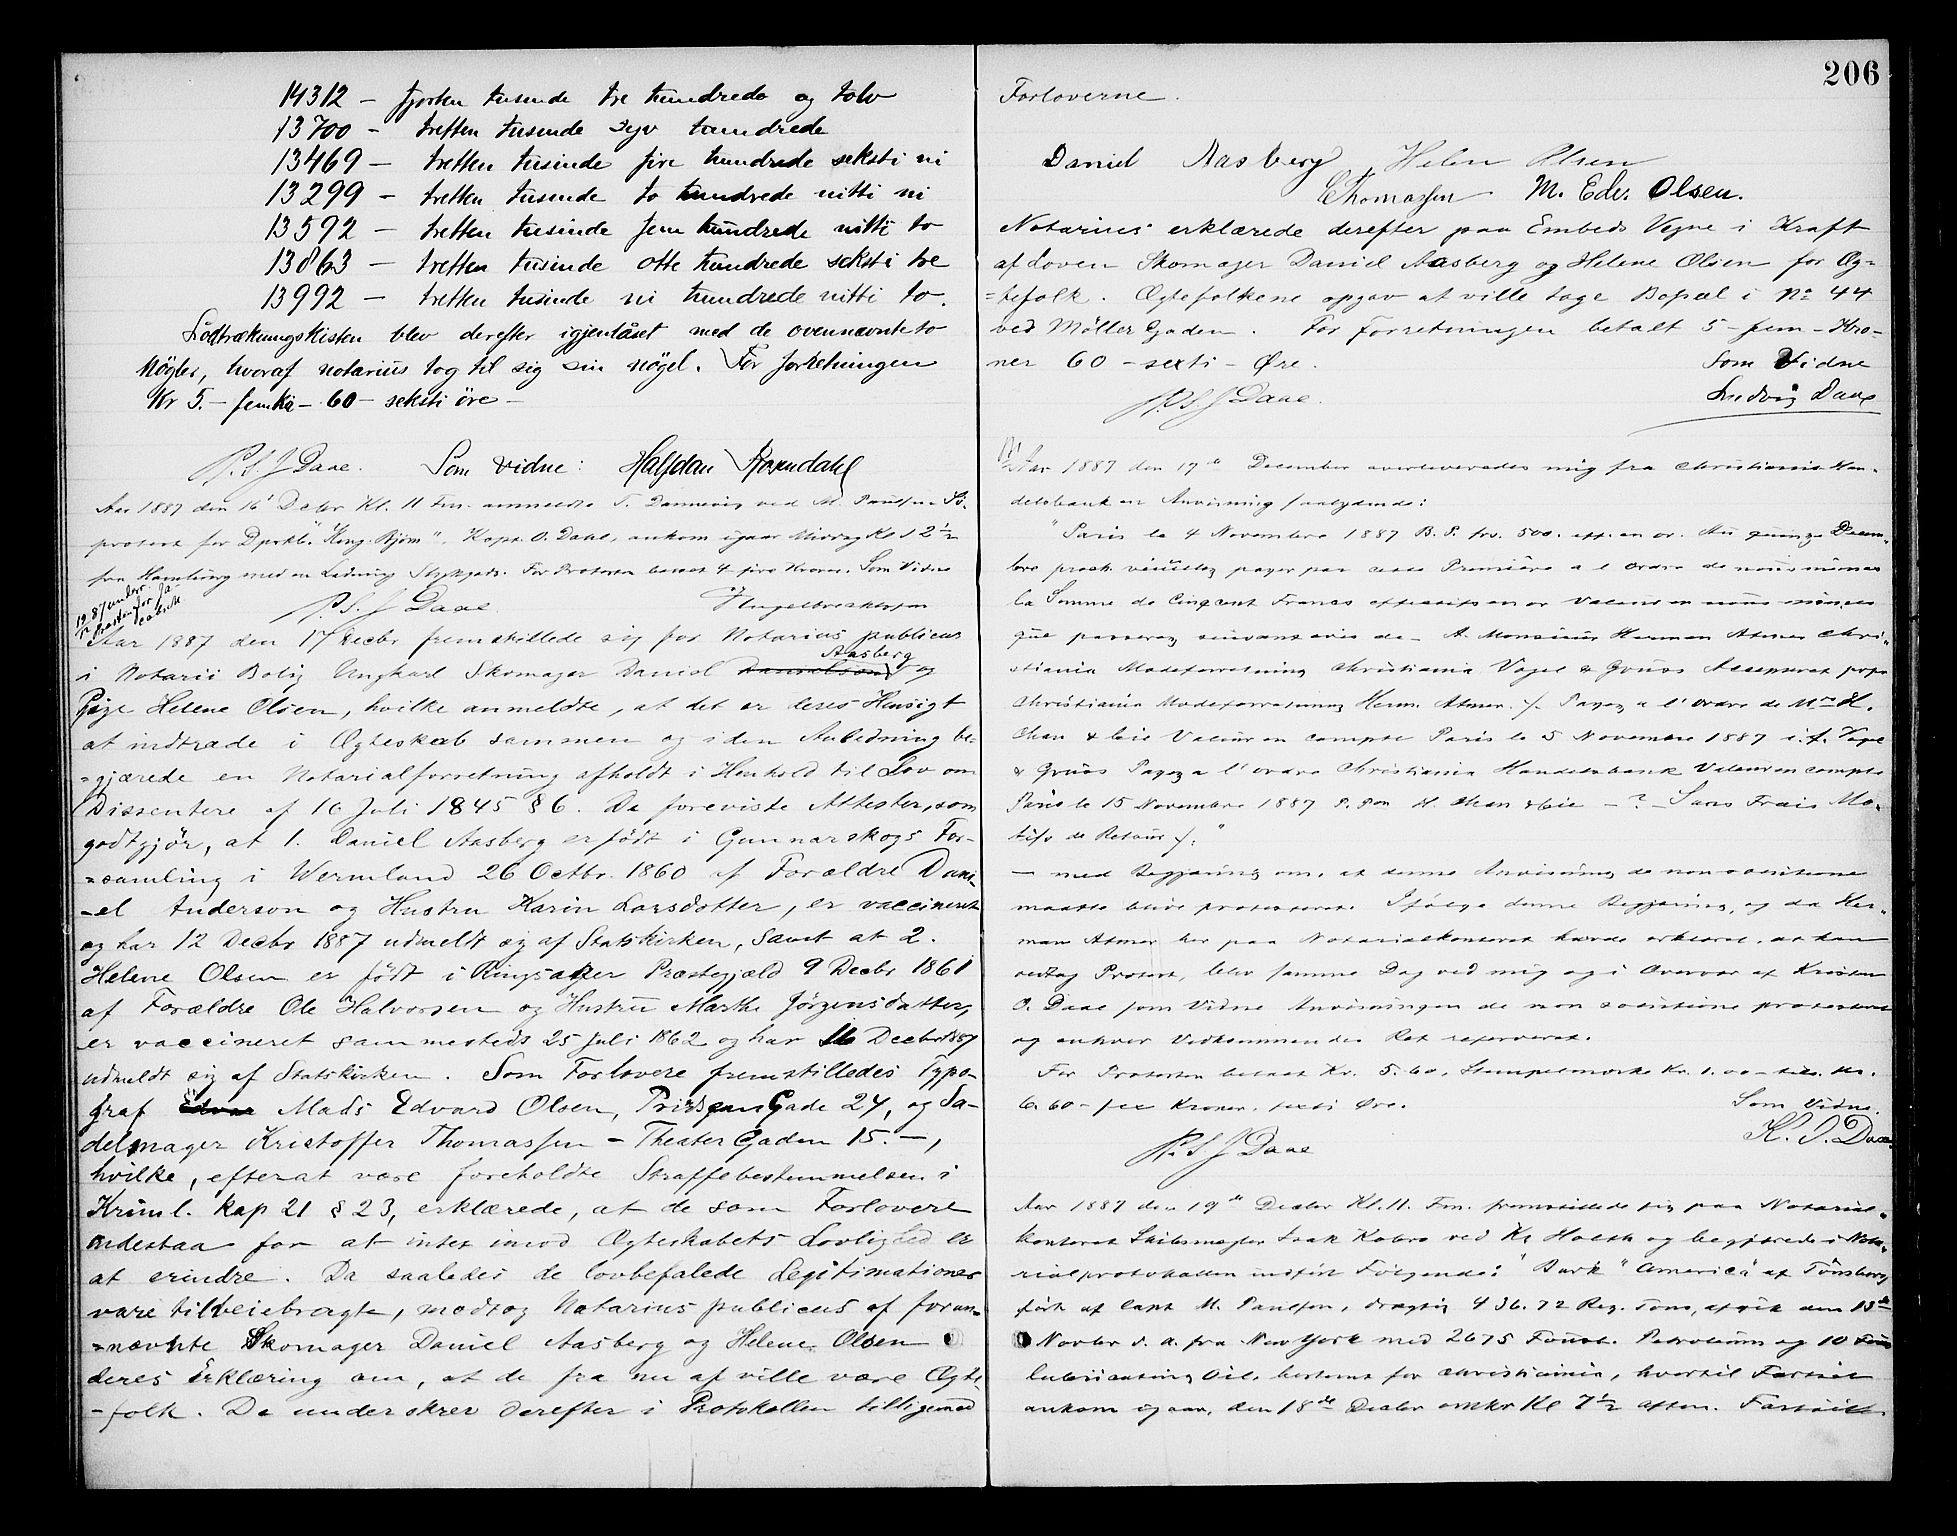 14312 – fjorten tusinde tre hundrede og tolv
13700 – tretten tusinde syv hundrede
13469 – tretten tusinde fire hundrede seksti ni
13299 – tretten tusinde to hundrede nitti ni
13592 – tretten tusinde fem hundrede nitti to
13863 – tretten tusinde otte hundrede seksti tre
13992 – tretten tusinde ni hundrede nitti to.
Lodtrækningskisten blev derefter igjenlåset med de ovennævnte to
Nøgler, hvoraf notarius tog til sig sin nøgel. For forretningen
Kr 5. – fem kr – 60 – seksti øre –
P. S. J Daae. Som vidne: Halfdan Rosendahl
Aar 1887 den 16' Decbr Kl. 11 Fm. anmeldte T. Dannevig ved M. Paulsen Sö-
protest for Dpskb. "Kong Bjørn", Kapt. O. Daae, ankom igaar Middag Kl 12 ½
fra Hamburg med en Ladning Stykgods. For Protesten betalt 4 fire Kroner. Som Vidne
P. S. J Daae
Aar 1887 den 17 Decbr fremstillede sig for Notarius publicus
i Notarii Bolig Ungkarl Skomager Daniel Danielson Aasberg og
Pige Helene Olsen, hvilke anmeldte, at det er deres Hensigt
at indtræde i Ægteskab sammen og i den Anledning be-
=gjærede en Notarialforretning afholdt i Henhold til Lov om
Dissentere af 16 Juli 1845 § 6. De foreviste Attester, som
godtgjör, at 1. Daniel Aasberg er födt i Gunnarskogs For-
=samling i Wermland 26 Octbr. 1860 af Forældre Dani-
-el Anderson og Hustru Karin Larsdotter, er vaccineret
og har 12 Decbr 1887 udmeldt sig af Statskirken, samt at 2.
Helene Olsen er födt i Ringsaker Præstegjæld 9 Decbr 1861
af Forældre Ole Halvorsen og Hustru Marthe Jörgensdatter,
er vaccineret sammesteds 25 Juli 1862 og har 16 Decbr 1887
udmeldt sig af Statskirken. Som Forlovere fremstilledes Typo-
graf Mads Edvard Olsen, Prindsens Gade 24, og Sa-
delmager Kristoffer Thomassen – Theater Gaden 15. –,
hvilke, efterat være foreholdte Straffebestemmelsen i
Kriml. Kap 21 § 23, erklærede, at de som Forlovere
indestaa for at intet imod Ægteskabets Lovlighed er
at erindre. Da saaledes de lovbefalede Legitimationer
vare tilveiebragte, modtog Notarius publicus af foran-
=nævnte Skomager Daniel Aasberg og Helene Olsen
deres Erklæring om, at de fra nu af ville være Ægte-
-folk. De underskrev derefter i Protokollen tilligemed
206
Forloverne.
Daniel Aasberg Helen Olsen
CThomassen M. Edv. Olsen.
Notarius erklærede derefter paa Embeds Vegne i Kraft
af Loven Skomager Daniel Aasberg og Helene Olsen for Æg-
=tefolk. Ægtefolkene opgav at ville tage Bopæl i No 44
ved Möller Gaden. For Forretningen betalt 5 – fem – Kro-
ner 60 – sexti – Øre. Som Vidne
P. S. J Daae. Ludvig Daae
Aar 1887 den 17de December overleveredes mig fra Christiania Han-
delsbank en Anvisning saalydende:
"Paris le 4 Novembre 1887 B. P. frs. 500. eff. en or. Au quinze Decem-
bre proch. veuillez payer par cette Première a l'ordre de nous mêmes
la Somme de Cinqcent Francs effectifs en or Valeur en nous mêmes
que passerez suivant avis de – A Monsieur Herman Atmer Chri-
stiania Modeforretning Christiania Vogel & Gruos Accepteret
Christiania Modeforretning Herm. Atmer ./. Payez a l'ordre de Mrs H.
Chan & Cie Valeur en compte Paris le 5 Novembre 1887
& Gruos Payez a l'ordre Christiania Handelsbank Valeur en compte
Paris le 15 Novembre 1887 P. Pon H. Chan & Cie – ? – Sans Frais Mo-
tifs de Retour ./."
– med Begjæring om, at denne Anvisning de non solutione
maatte blive protesteret. Ifølge denne Begjæring, og da Her-
man Atmer her paa Notarialkontoret havde erklæret, at han
vedtog Protest, blev samme Dag ved mig og i Overvær af Kristen
O. Daae som Vidne Anvisningen de non solutione protesteret
og enhver Vedkommendes Ret reserveret.
For Protesten betalt Kr. 5.60, Stempelmærke Kr. 1.00 – tils. Kr.
6.60 – sex Kroner, sexti Øre. Som Vidne.
P. S J Daae K. O. Daae
Aar 1887 den 19de Decbr Kl. 11. Fm. fremstillede sig paa Notarial-
kontoret Skibsmægler Isak Kobro ved Kr Holth og begjærede i Nota-
rialprotokollen indfört Følgende: "Bark "America" af Tönsberg
ført af Capt M. Paulsen, drægtig 436.72 Reg. Tons, afgik den 13de
Novbr d. A. fra New York med 2675 Fustr. Petroleum og 10 Fus
lubricating Oil, bestemt for Christiania, hvortil Fartöiet
ankom igaar, den 18de Decbr omkr Kl 7 ½ aften. Fartöiet